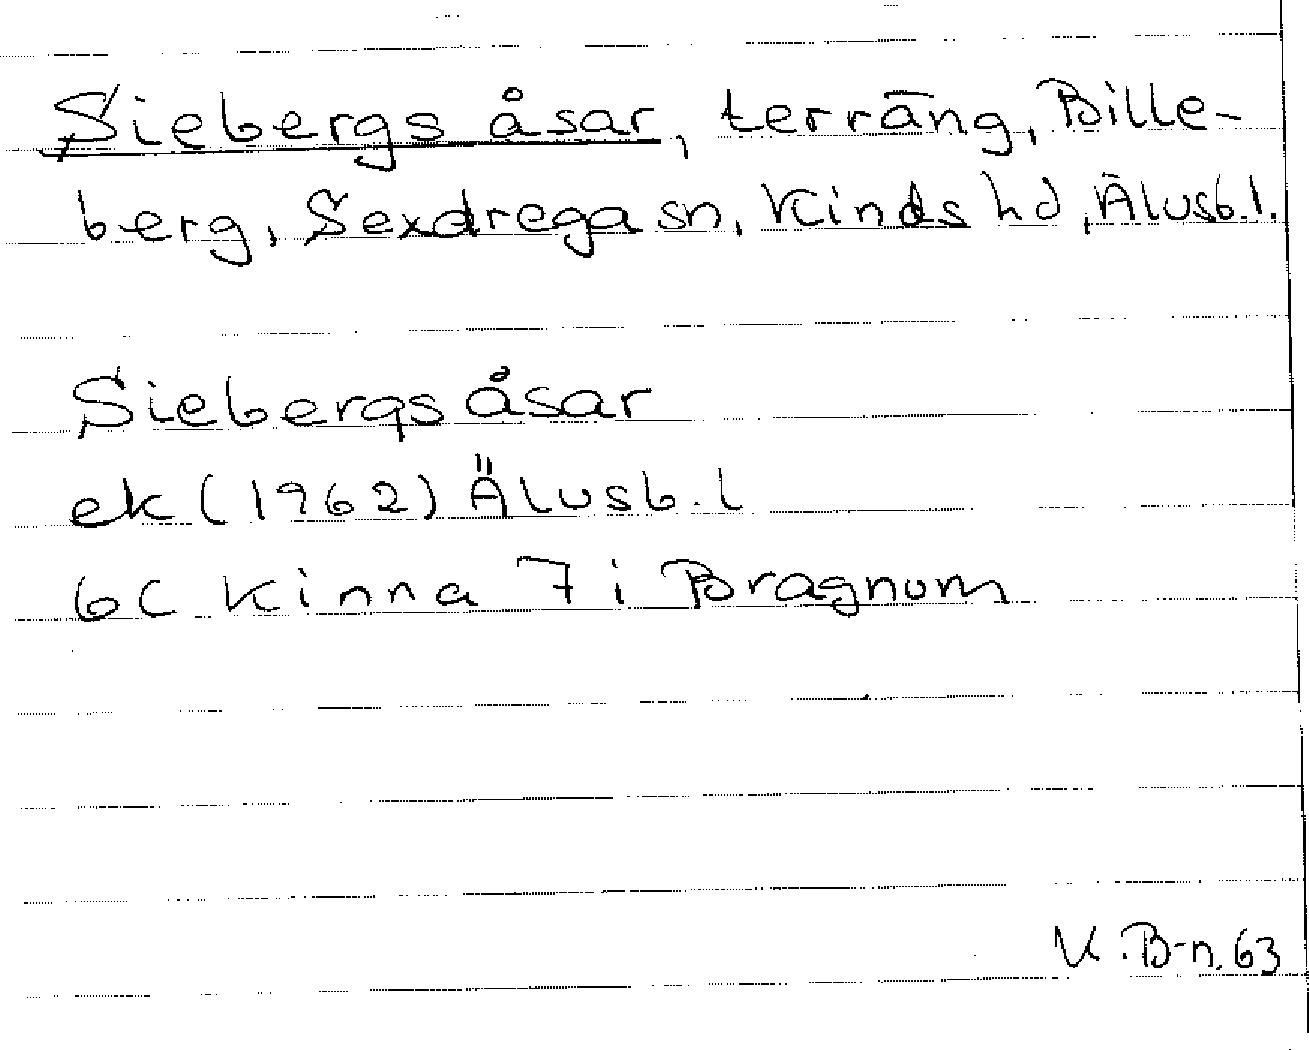 Siebergs åsar, terräng, Bille-
berg, Sexdrega sn, Kinds hd, Älvsb.l.
Siebergs åsar
ek (1962) Älvsb.l
6C Kinna 7i Bragnum
K.B-n. 63